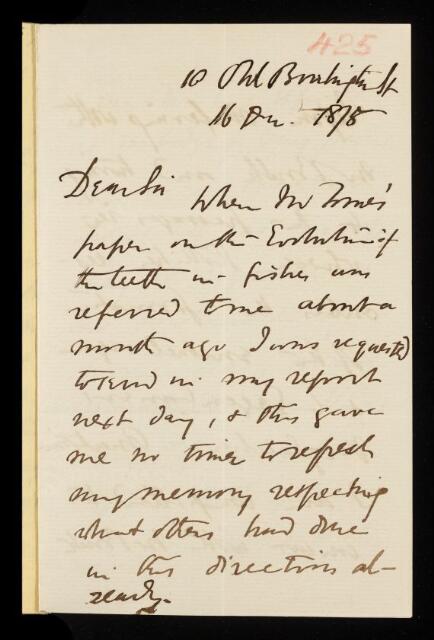 425
10 Old Burlington St
16 Dec. 1875
Dear Sir When Mr Tomes's
paper on the Evolution of
the teeth in fishes was
referred to me about a
month ago I was requested
to send in my report
next day, & this gave
me no time to refresh
my memory respecting
what others had done
in this direction al-
ready.